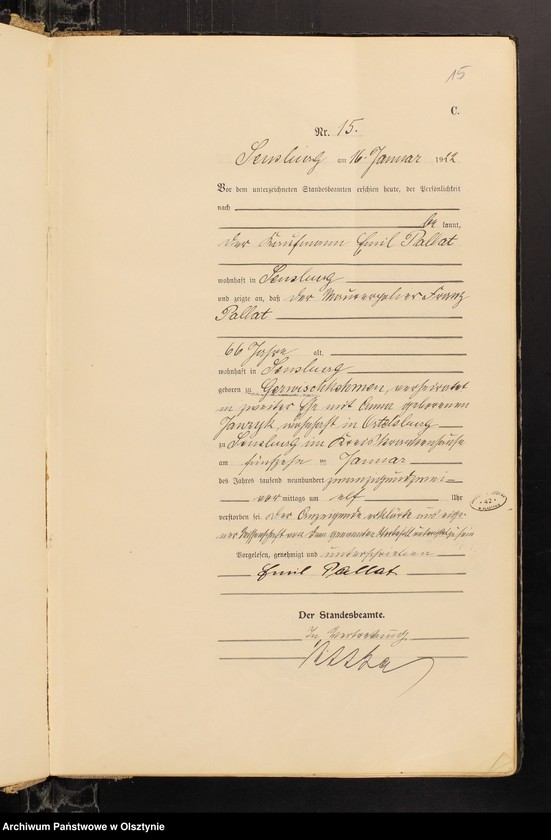 15
C.
Nr. 15.
Sensburg am 16. Januar 1922
Vor dem unterzeichneten Standesbeamten erschien heute, der Persönlichkeit
nach
be kannt,
der Kaufmann Emil Pallat
wohnhaft in Sensburg
und zeigte an, daß der Maurerpolier Franz
Pallat
66 Jahre alt,
wohnhaft in Sensburg
geboren zu Gerwischkehmen, verheiratet
in zweiter Ehe mit Anna geborenen
wohnhaft in Ortelsburg
zu Sensburg im Kreiskrankenhause
am fünfzehn ten Januar
des Jahres tausend neunhundert zwanzigundzwei
vor mittags um elf Uhr
verstorben sei. Der Anzeigende erklärte aus eige-
ner Wissenschaft von dem genannten Sterbefall unterrichtet zu sein
Vorgelesen, genehmigt und unterschrieben
Emil Pallat
Der Standesbeamte.
In Vertretung.
Archiwum Państwowe w Olsztynie